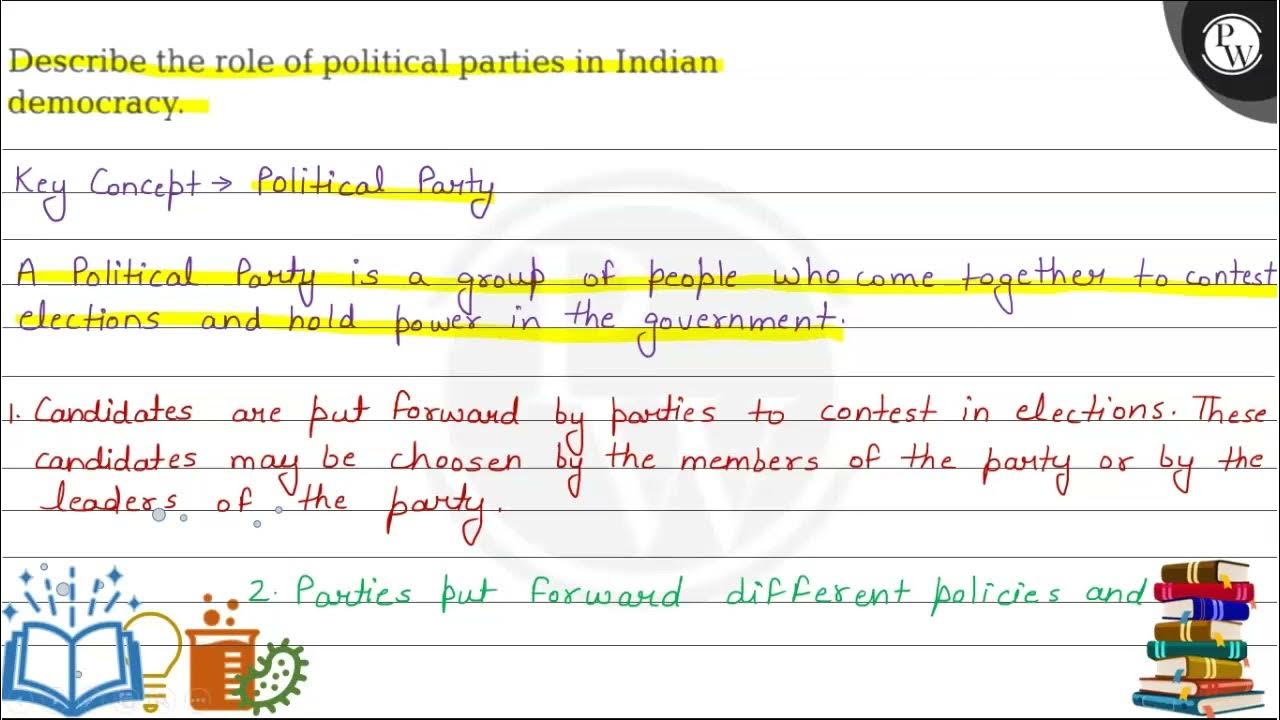 Describe the role of political parties in Indian
democracy.
PW
Key Concept → Political Party
A Political Party is a group of people who come together to contest
elections and hold power in the government.
1. Candidates are put forward by parties to contest in elections. These
candidates may be choosen by the members of the party or by the
leaders of the party.
2. Parties put forward different policies and